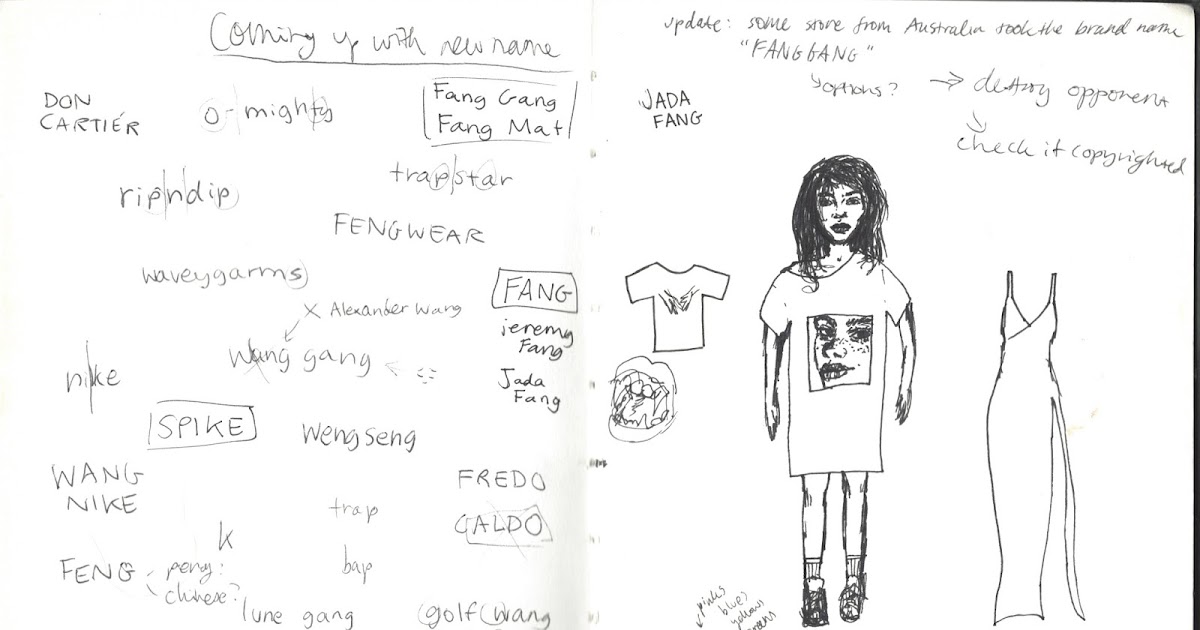 Coming up with new name
DON
CARTIÉR
o-mighty
Fang Gang
Fang Mat
ripndip
trapstar
FENGWEAR
waveygarms
FANG
X Alexander Wang
jeremy
Fang
wang gang
nike
Jada
Fang
SPIKE
wengseng
WANG
NIKE
FREDO
trap
GALDO
K
FENG
peng:
chinese?
bap
lune gang
golf wang
update: some store from Australia took the brand name
"FANGGANG"
options? → destroy opponent
check if copyrighted
JADA
FANG
pinks
blues
yellows